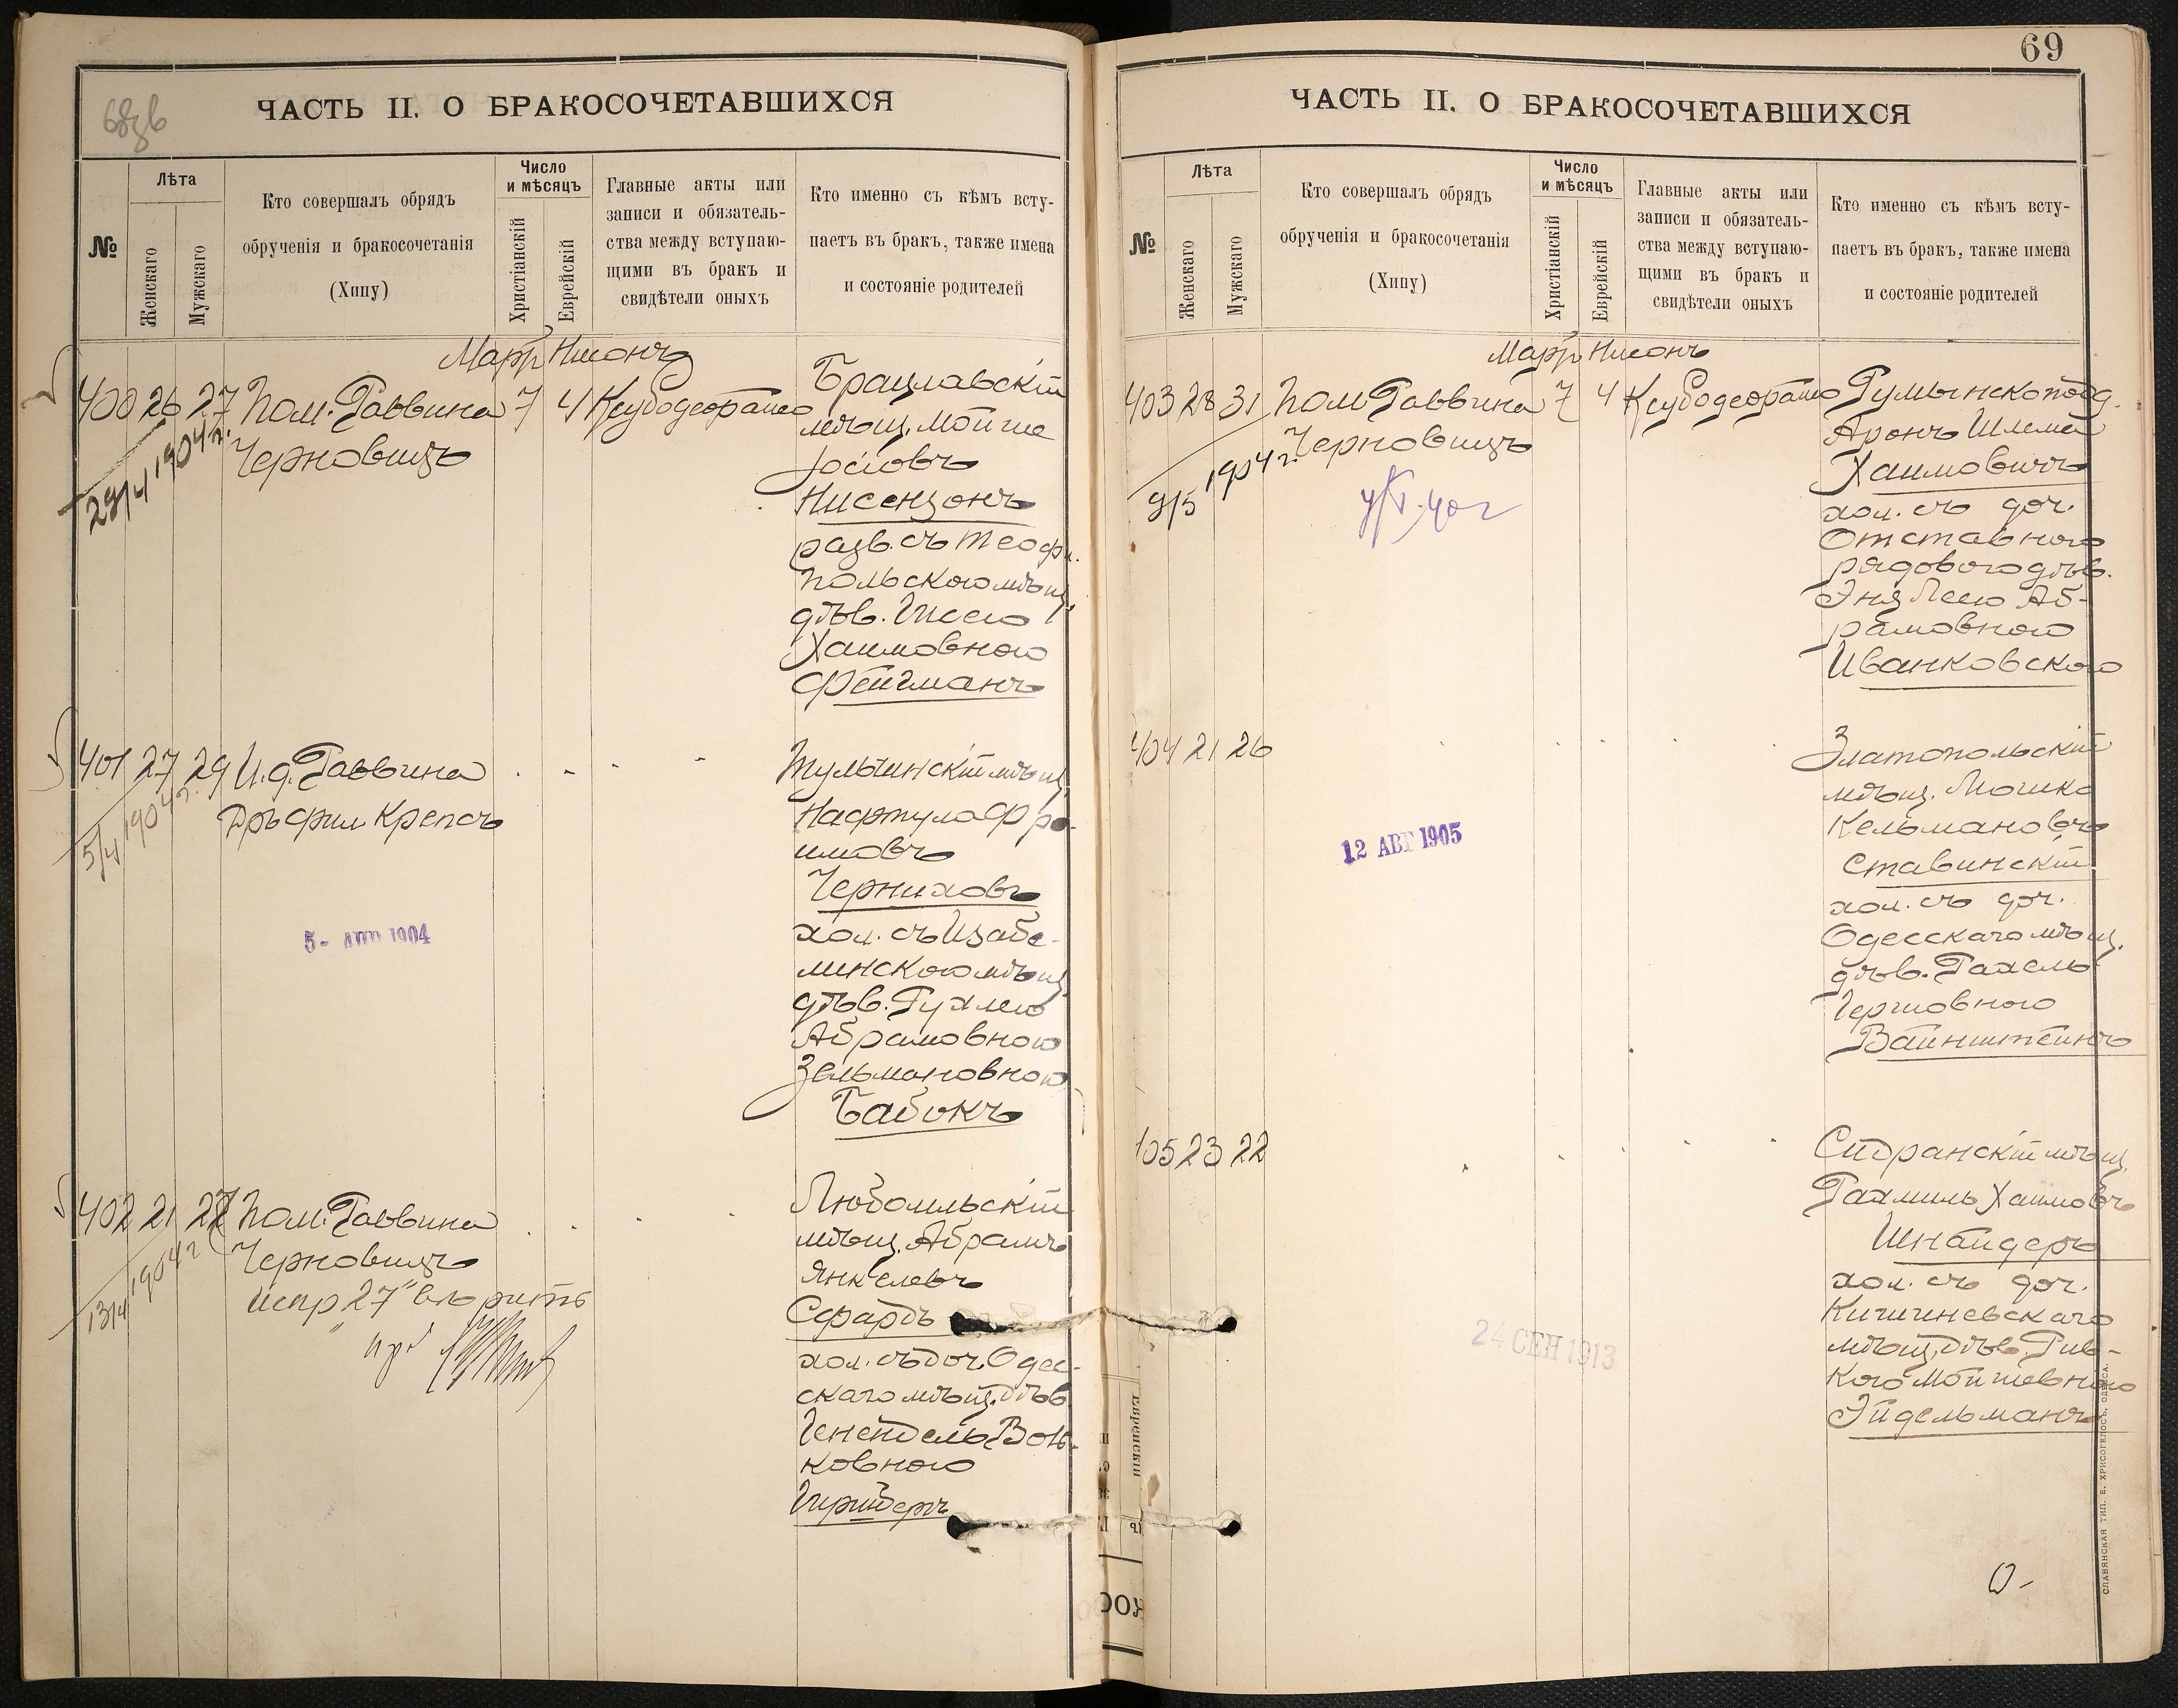 68зв
ЧАСТЬ II. О БРАКОСОЧЕТАВШИХСЯ
№
Лѣта
Женскаго
Мужскаго
Кто совершалъ обрядъ
обрученія и бракосочетанія
(Хипу)
Число
и мѣсяцъ
Христіанскій
Еврейскій
Главные акты или
записи и обязатель-
ства между вступаю-
щими въ бракъ и
свидѣтели оныхъ
Кто именно съ кѣмъ всту-
паетъ въ бракъ, также имена
и состояніе родителей
Мартъ Нисонъ
400 26 27 Пом. Раввина 7 4 Ксубодеорайсо
Черновицъ
29/4 1904 г.
Брацлавскій
мѣщ. Мойше
Іосіовъ
Нисензонъ
разв. съ Теофи-
польскою мѣщ.
дѣв. Ипсею
Хаимовною
Фейгманъ
401 27 29 И. д. Раввина
Дръ фил Крепсъ
5/4 1904 г.
5 - АПР 1904
Тульчинскій мѣщ.
Нафтула Фро-
имовъ
Черниховъ
хол. съ Изабе-
линскою мѣщ.
дѣв. Рухлею
Абрамовною
Зельмановною
Бабокъ
402 21 27 Пом. Раввина
Черновицъ
13/4 1904 г
испр „27" вѣрить
Любомльскій
мѣщ. Абрамъ
Янкелевъ
Сфардъ
хол. съ доч. Одес-
скаго мѣщ. дѣв.
Генендель Воль-
ковною
69
ЧАСТЬ II. О БРАКОСОЧЕТАВШИХСЯ
№
Лѣта
Женскаго
Мужскаго
Кто совершалъ обрядъ
обрученія и бракосочетанія
(Хипу)
Число
и мѣсяцъ
Христіанскій
Еврейскій
Главные акты или
записи и обязатель-
ства между вступаю-
щими въ бракъ и
свидѣтели оныхъ
Кто именно съ кѣмъ всту-
паетъ въ бракъ, также имена
и состояніе родителей
Мартъ Нисонъ
403 28 31 Пом Раввина 7 4 Ксубодеорайсо
Черновицъ
9/5 1904 г.
Румынскоподд.
Аронъ Шлема
Хаимовичъ
хол. съ доч.
Отставного
рядового дѣв.
Эня Леею Аб-
рамовною
Иванковскою
404 21 26
12 АВГ 1905
Златопольскій
мѣщ. Мошко
Кельмановъ
Ставинскій
хол. съ доч.
Одесскаго мѣщ.
дѣв. Рахель
Гершовною
Вайнштейнъ
405 23 22
24 СЕН 1913
мѣщ.
Рахмиль Хаимовъ
Шнайдеръ
хол. съ доч.
Кишиневскаго
мѣщ. дѣв. Рив-
кою Мойшевною
Эйдельманъ
СЛАВЯНСКАЯ ТИП. Е. ХРИСОГЕЛОСЪ, ОДЕССА.